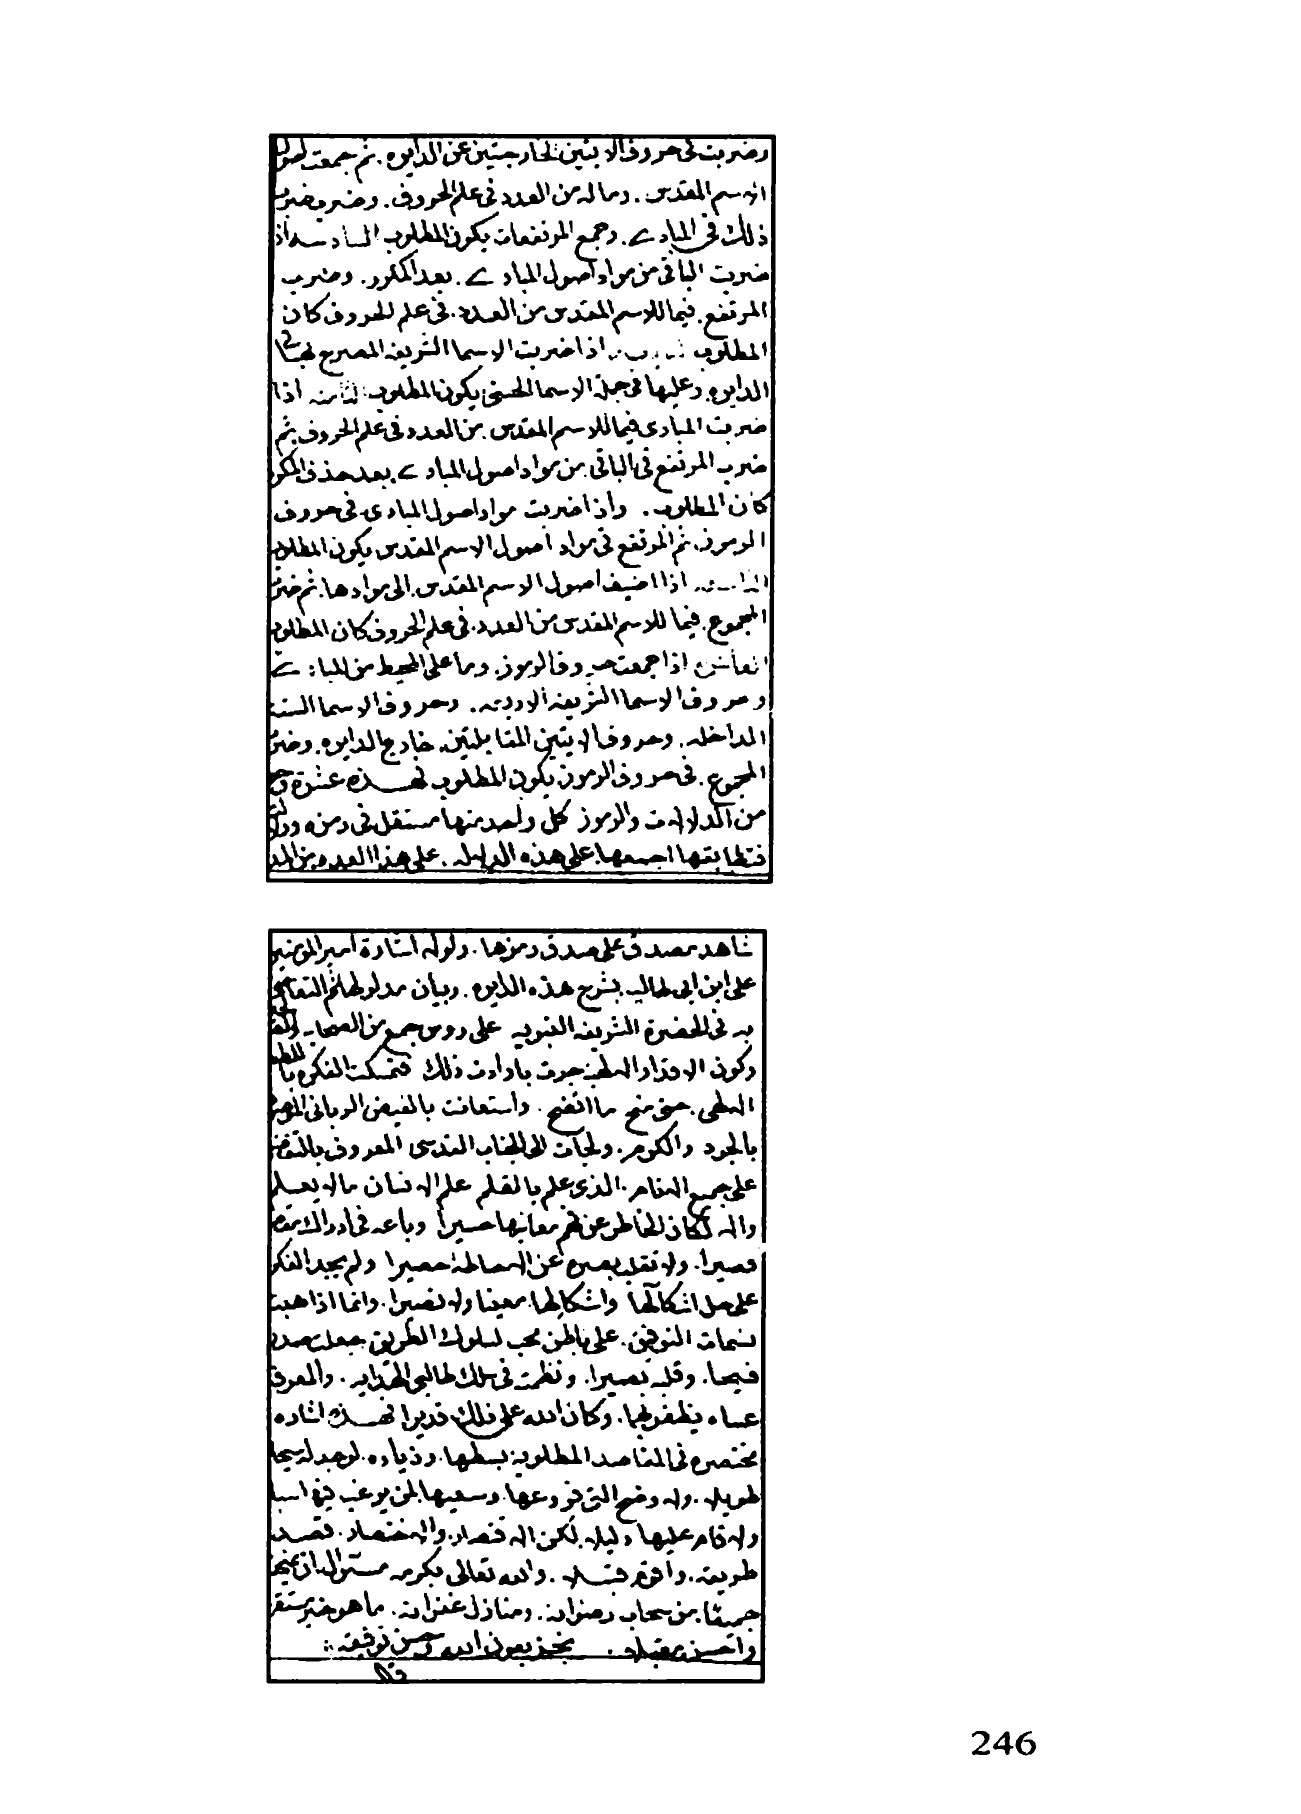 وضربت في حروف الايتين الخارجتين عن الدايره. ثم جمعت اصول
الاسم المقدس. وماله من العدد في علم الحروف. وضرب
ذلك في المبادي. وجمع المرتفعات يكون المطلوب السادسه اذا
ضربت الباقي من مواد اصول المبادي. بعد المكرر. وضرب
المرتفع. فيما للاسم المقدس من العدد. في علم الحروف كان
المطلوب اذا ضربت الاسما الشريفه المصرح بها في
الدايره. وعليها في جملة الاسما الحسنى يكون المطلوب الثامنه اذا
ضربت المبادي فيما للاسم المقدس. من العدد في علم الحروف ثم
ضرب المرتفع في الباقي من مواد اصول المبادي. بعد حذف المكرر
كان المطلوب. واذا ضربت مواد اصول المبادي في حروف
الرموز. ثم المرتفع في مواد اصول الاسم المقدس يكون المطلوب
اذا اضيف اصول الاسم المقدس. الى موادها. ثم ضرب
المجموع. فيما للاسم المقدس من العدد. في علم الحروف كان المطلوب
العاشره اذا جمعت حروف الرموز. وما على المحيط من المبادي
وحروف الاسما الشريفه الاربعه. وحروف الاسما الستة
الداخله. وحروف الايتين المقابلتين. خارج الدايره. وضرب
المجموع. في حروف الرموز يكون المطلوب فهذه عشرة
من الدلالات والرموز كل واحد منها مستقل في رمزه
فتطابقها اجمعها. على هذه الدلاله. على هذا العدد من
شاهد مصدق على صدق رمزها. ولولا اشارة امير المومنين
علي ابن ابي طالب بشرح هذه الدايره. وبيان مدلولها
به في الحضرة الشريفه النبويه على روس جمع من الصحابه
وكون الاقدار الالهية جرت بارادت ذلك فتمسكت الفكره
الالهي. حتى منح ما اتضح. واستعانت بالفيض الرباني
بالجود والكرم. ولجات الى الجناب القدسي المعروف
على جميع الانام. الذي علم بالقلم علم الانسان مالم يعلم
والا لكان الخاطر عن فهم معانيها حسيرا وباعه في ادراك
قصيرا. ولانقلب بصره عن الاحاطة حصيرا ولم يجد الفكر
على حل اشكالها واشكالها. معينا ولا نصيرا. وانما اذا هبت
نسمات التوفيق. على باطن محب لسلوك الطريق جعلت صدره
فسيحا. وقلبه بصيرا. ونظمت في سلك طالبي الهدايه. والمعرفة
عساه يظفر بها. وكان الله على ذلك قديرا فهذه اشاره
مختصره في المقاصد المطلوبة بسطها. وزياده. لوجد له
طويلا. ولا وضح التي فروعها. وسعيها. لمن يرغب فيها
ولا قام عليها دليلا. لكن الاقتصاد. والاختصار.
طريقه. واقوم قيلا. والله تعالى بكرمه مسئول ان
جميعا. من سحاب رضوانه. ومنازل غفرانه. ما هو خير مستقر
واحسن مقيلا. بعون الله وحسن توفيقه
قال
246